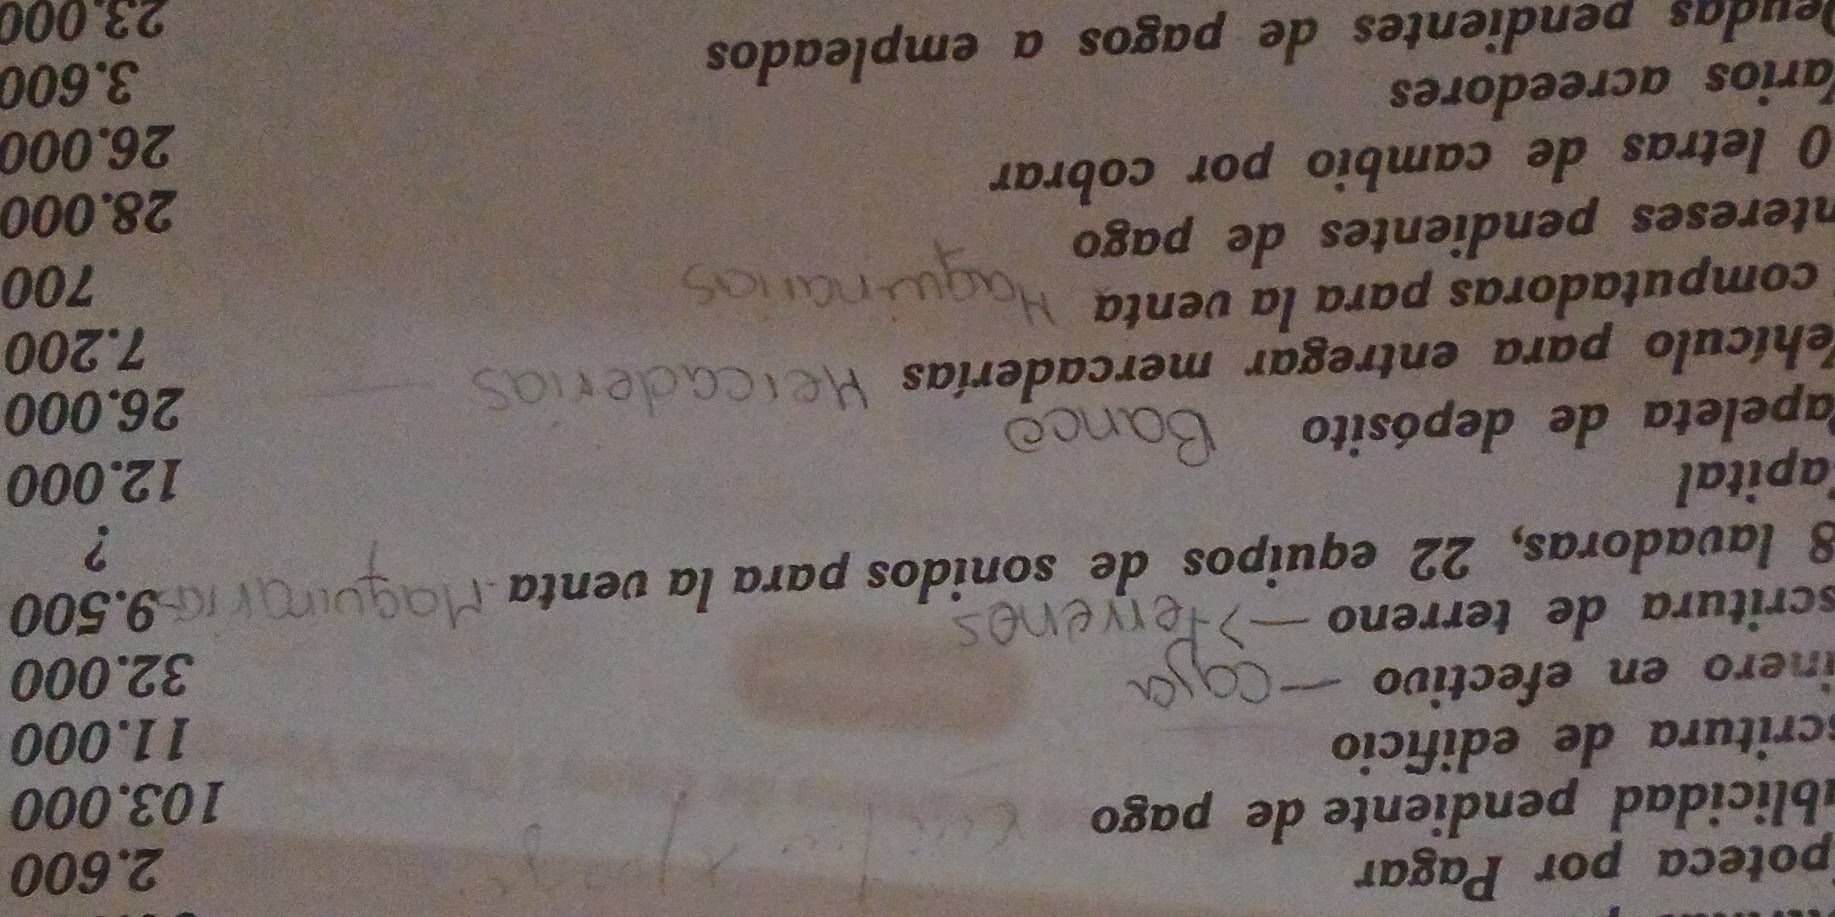 poteca por Pagar 2.600
blicidad pendiente de pago 103.000
scritura de edificio 11.000
inero en efectivo — caja 32.000
scritura de terreno —> terrenos 9.500
8 lavadoras, 22 equipos de sonidos para la venta Maquinaria ?
apital 12.000
apeleta de depósito Banco 26.000
ehículo para entregar mercaderías Mercaderias 7.200
computadoras para la venta Maquinarias 700
ntereses pendientes de pago 28.000
0 letras de cambio por cobrar 26.000
arios acreedores 3.600
Deudas pendientes de pagos a empleados 23.000